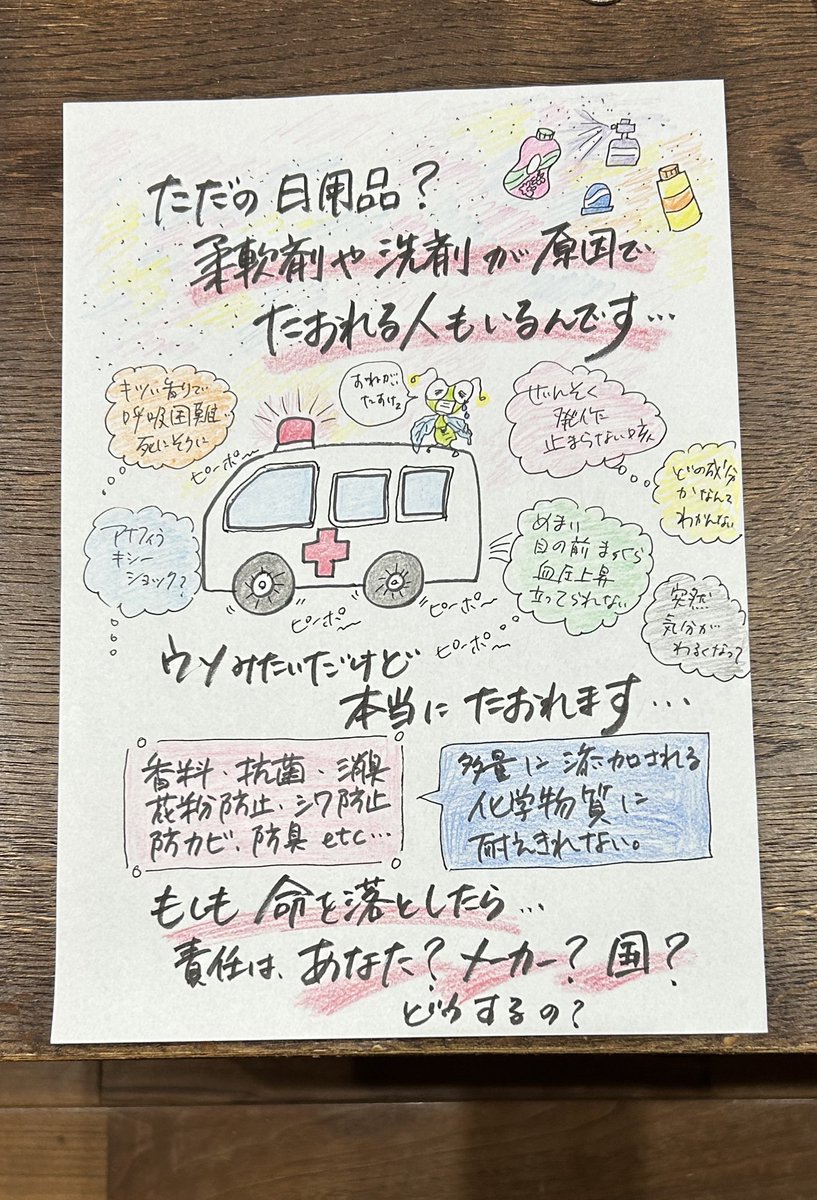 ただの日用品?
柔軟剤や洗剤が原因で
たおれる人もいるんです…
キツい香りで
呼吸困難…
死にそうに
おねがい
たすけて
ぜんそく
発作
止まらない咳
どの成分
かなんて
わかんない
ピーポ〜
アナフィラ
キシー
ショック?
めまい
目の前まっくら
血圧上昇
立ってられない
突然
気分が
わるくなって
ピーポ〜
ピーポ〜
ピーポ〜
ウソみたいだけど
本当にたおれます…
香料、抗菌、消臭
花粉防止、シワ防止
防カビ、防臭 etc…
多量に添加される
化学物質に
耐えきれない。
もしも命を落としたら…
責任は、あなた?メーカー?国?
どうするの?